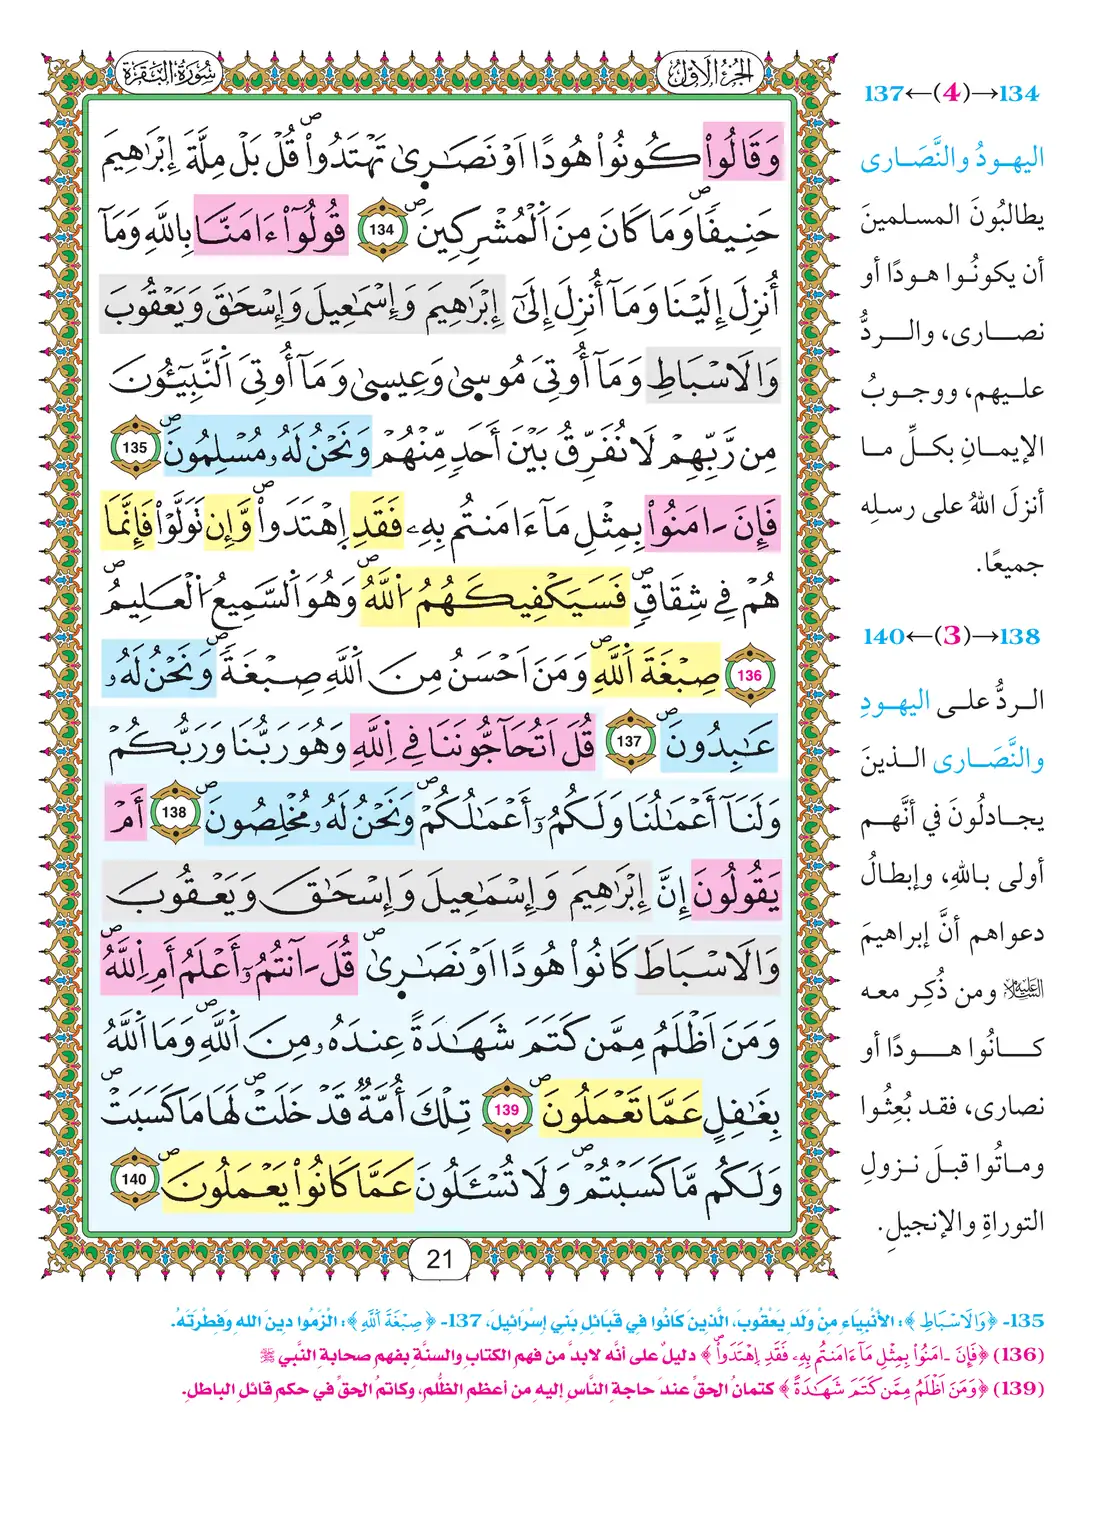 الجزء الأول
سورة البقرة
وَقَالُوا۟ كُونُوا۟ هُودًا اَوْ نَصَٰرِىٰ تَهْتَدُوا۟ۖ قُلْ بَلْ مِلَّةَ إِبْرَٰهِيمَ
حَنِيفًاۖ وَمَا كَانَ مِنَ اَ۬لْمُشْرِكِينَۖ 134 قُولُوٓا۟ ءَامَنَّا بِاللَّهِ وَمَآ
أُنزِلَ إِلَيْنَا وَمَآ أُنزِلَ إِلَىٰٓ إِبْرَٰهِيمَ وَإِسْمَٰعِيلَ وَإِسْحَٰقَ وَيَعْقُوبَ
وَالَاسْبَاطِ وَمَآ أُوتِىَ مُوسِىٰ وَعِيسِىٰ وَمَآ أُوتِىَ اَ۬لنَّبِيٓـُٔونَ
مِن رَّبِّهِمْ لَا نُفَرِّقُ بَيْنَ أَحَدٍ مِّنْهُمْ وَنَحْنُ لَهُۥ مُسْلِمُونَۖ 135
فَإِنَ ـامَنُوا۟ بِمِثْلِ مَآ ءَامَنتُم بِهِۦ فَقَدِ اِ۪هْتَدَوا۟ۖ وَّإِن تَوَلَّوْا۟ فَإِنَّمَا
هُمْ فِى شِقَاقٍۖ فَسَيَكْفِيكَهُمُ اُ۬للَّهُۖ وَهُوَ اَ۬لسَّمِيعُ اُ۬لْعَلِيمُۖ
136 صِبْغَةَ اَ۬للَّهِۖ وَمَنَ اَحْسَنُ مِنَ اَ۬للَّهِ صِبْغَةًۖ وَنَحْنُ لَهُۥ
عَٰبِدُونَۖ 137 قُلَ اَتُحَآجُّونَنَا فِى اِ۬للَّهِ وَهُوَ رَبُّنَا وَرَبُّكُمْ
وَلَنَآ أَعْمَٰلُنَا وَلَكُمُۥٓ أَعْمَٰلُكُمْۖ وَنَحْنُ لَهُۥ مُخْلِصُونَۖ 138 أَمْ
يَقُولُونَ إِنَّ إِبْرَٰهِيمَ وَإِسْمَٰعِيلَ وَإِسْحَٰقَ وَيَعْقُوبَ
وَالَاسْبَاطَ كَانُوا۟ هُودًا اَوْ نَصَٰرِىٰۖ قُلَ ـآنتُمُۥٓ أَعْلَمُ أَمِ اِ۬للَّهُۖ
وَمَنَ اَظْلَمُ مِمَّن كَتَمَ شَهَٰدَةً عِندَهُۥ مِنَ اَ۬للَّهِۖ وَمَا اَ۬للَّهُ
بِغَٰفِلٍ عَمَّا تَعْمَلُونَۖ 139 تِلْكَ أُمَّةٌ قَدْ خَلَتْۖ لَهَا مَا كَسَبَتْۖ
وَلَكُم مَّا كَسَبْتُمْۖ وَلَا تُسْـَٔلُونَ عَمَّا كَانُوا۟ يَعْمَلُونَۖ 140
21
134→(4)←137
اليهودُ والنَّصَارى
يطالبُونَ المسلمينَ
أن يكونُوا هودًا أو
نصارى، والردُّ
عليهم، ووجوبُ
الإيمانِ بكلِّ ما
أنزلَ اللهُ على رسلِه
جميعًا.
138→(3)←140
الردُّ على اليهودِ
والنَّصَارى الذينَ
يجادلُونَ في أنَّهم
أولى باللهِ، وإبطالُ
دعواهم أنَّ إبراهيمَ
عليه السلام ومن ذُكِر معه
كانُوا هودًا أو
نصارى، فقد بُعِثُوا
وماتُوا قبلَ نزولِ
التوراةِ والإنجيلِ.
135- ﴿وَالَاسْبَاطِ﴾: الأنْبِيَاءِ مِنْ وَلَدِ يَعْقُوبَ، الَّذِينَ كَانُوا في قَبَائِلِ بَنِي إِسْرَائِيلَ، 137- ﴿صِبْغَةَ اَ۬للَّهِ﴾: الْزَمُوا دِينَ اللهِ وَفِطْرَتَهُ.
(136) ﴿فَإِنَ ـامَنُوا۟ بِمِثْلِ مَآ ءَامَنتُم بِهِۦ فَقَدِ اِ۪هْتَدَوا۟ۖ﴾ دليلٌ على أنَّه لابدَّ من فهمِ الكتابِ والسنَّةِ بفهمِ صحابةِ النَّبي ﷺ
(139) ﴿وَمَنَ اَظْلَمُ مِمَّن كَتَمَ شَهَٰدَةً﴾ كتمانُ الحقِّ عندَ حاجةِ النَّاسِ إليه من أعظمِ الظُّلمِ، وكاتمُ الحقِّ في حكمِ قائلِ الباطلِ.